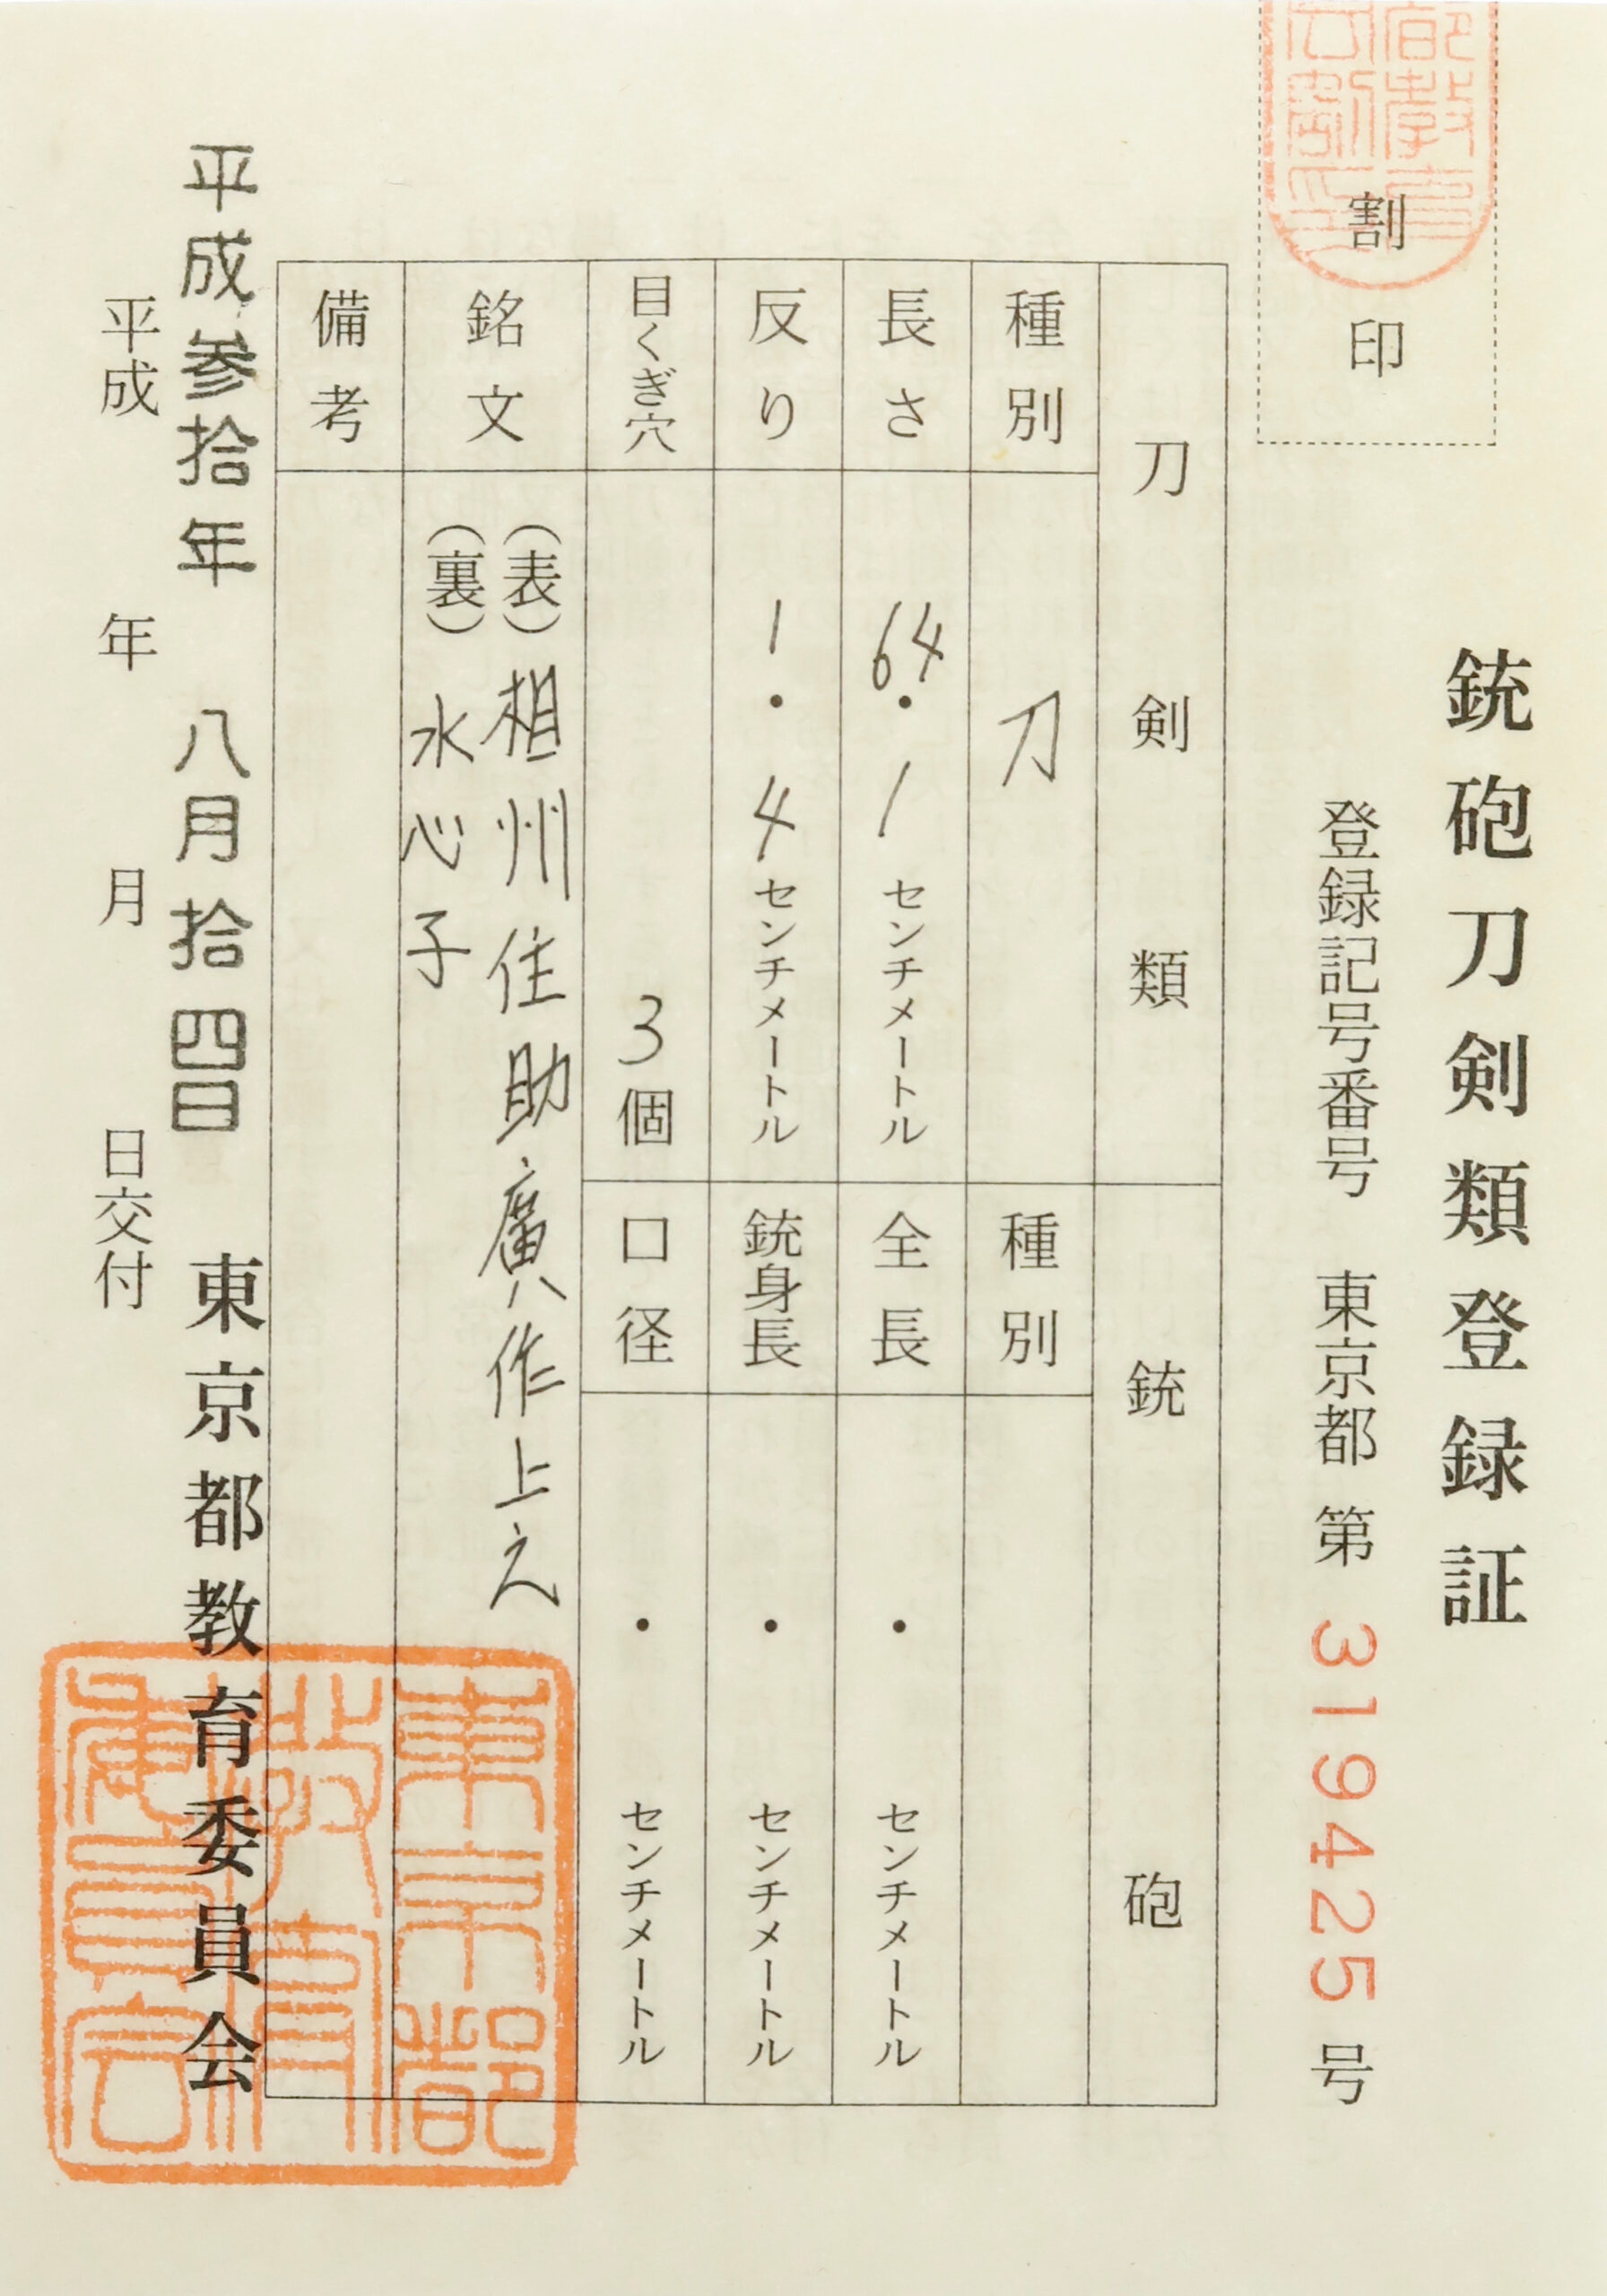 銃砲刀剣類登録証
割印
登録記号番号 東京都 第 319425 号
刀剣類 銃砲
種別 刀 種別
長さ 64・1 センチメートル 全長 ・ センチメートル
反り 1・4 センチメートル 銃身長 ・ センチメートル
目くぎ穴 3個 口径 ・ センチメートル
銘文 (表)相州住助廣作上之
(裏)水心子
備考
平成参拾年 八月拾四日 東京都教育委員会
平成 年 月 日交付
東京都
教育
委員会